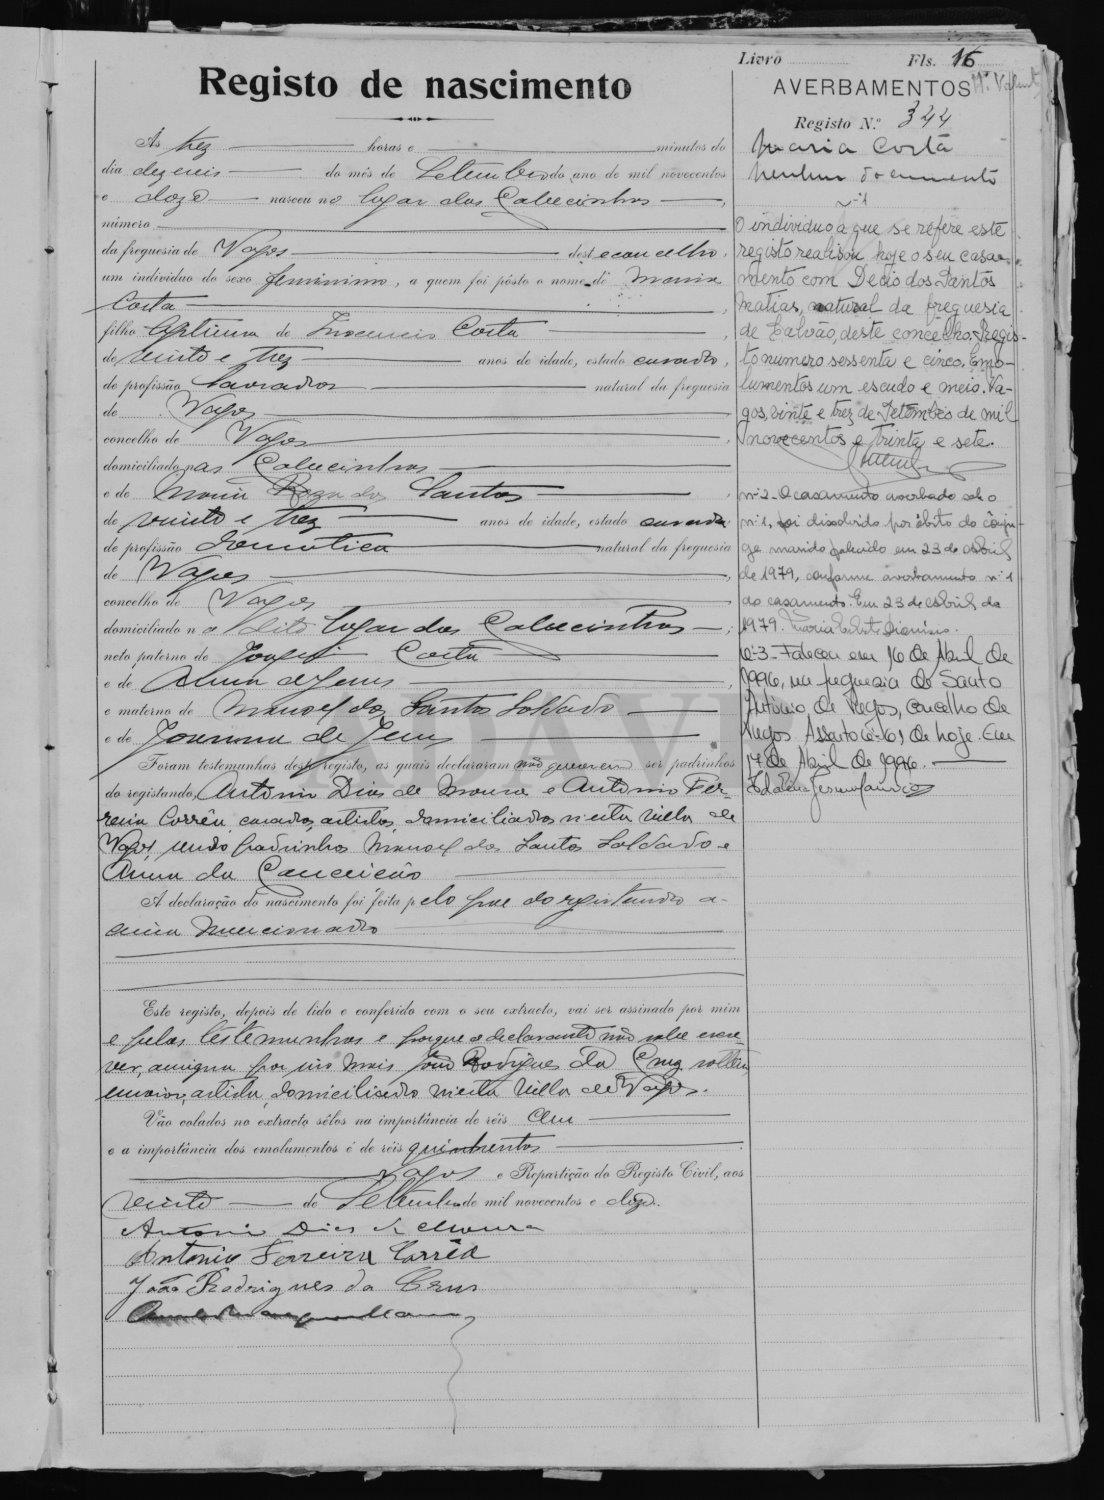 Livro Fls. 16
Registo de nascimento
AVERBAMENTOS
Registo N.º 344
Maria Costa
Nenhum documento
Às trez horas e minutos do
dia dezeseis do mês de Setembro do ano de mil novecentos
e doze nasceu no logar das Cabecinhas,
número
da freguesia de Vagos deste concelho,
um indivíduo do sexo feminino, a quem foi pôsto o nome de Maria
Costa
filho legitima de Inocencio Costa,
de vinte e trez anos de idade, estado casado,
de profissão lavrador natural da freguesia
de Vagos
concelho de Vagos,
domiciliado nas Cabecinhas
e de Maria Roza dos Santos,
de vinte e trez anos de idade, estado casada
de profissão domestica natural da freguesia
de Vagos,
concelho de Vagos
domiciliado no dito logar das Cabecinhas;
neto paterno de Joseph Costa
e de Anna de Jesus,
e materno de Manoel dos Santos Soldado
e de Joanna de Jesus.
Foram testemunhas deste registo, as quais declararam não quererem ser padrinhos
do registando, Antonio Dias de Moura e Antonio Fer-
reira Corrêa, casados, artistas, domiciliados n'esta Villa de
Vagos, sendo padrinhos Manoel dos Santos Soldado e
Anna da Conceição
A declaração do nascimento foi feita pelo pae do registando a-
cima mencionado
Este registo, depois de lido e conferido com o seu extracto, vai ser assinado por mim
e pelas testemunhas e porque o declarante não sabe escre-
ver, assigna por João Rodrigues da Cruz, solteiro,
maior, artista, domiciliado n'esta Villa de Vagos.
Vão colados no extracto sêlos na importância de réis cem
e a importância dos emolumentos é de réis quinhentos
Vagos e Repartição do Registo Civil, aos
vinte de Setembro de mil novecentos e doze.
Antonio Dias de Moura
Antonio Ferreira Corrêa
João Rodrigues da Crus
nº 1
O indivíduo a que se refere este
registo realisou hoje o seu casa-
mento com Decio dos Santos
Matias, natural da freguesia
de Calvão, deste concelho. Regis-
to numero sessenta e cinco. Emo-
lumentos um escudo e meio. Va-
gos, vinte e trez de Setembro de mil
novecentos e trinta e sete.
nº 2 - O casamento averbado sob o
nº 1, foi dissolvido por óbito do cônju-
ge marido falecido em 23 de Abril
de 1979, conforme averbamento nº 1
ao casamento. Em 23 de Abril de
1979.
nº 3 - Faleceu em 16 de Abril de
1996, na freguesia de Santo
António de Vagos, concelho de
Vagos. Assento nº 61 de hoje. Em
17 de Abril de 1996.